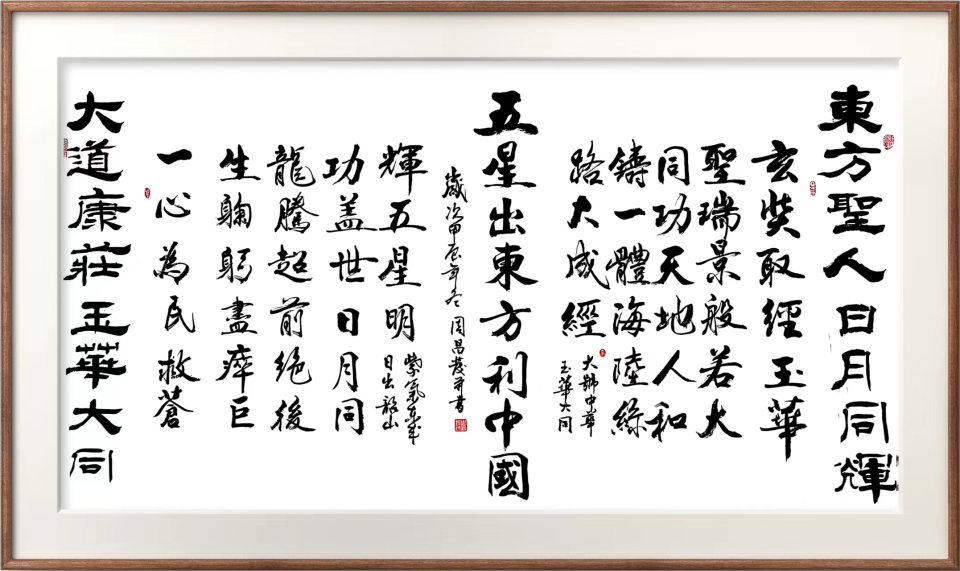 東方聖人日月同輝
玄奘取經玉華
聖瑞景般若大
同功天地人和
鑄一體海陸絲
路大成經
玉華大同
五星出東方利中國
大道康莊玉華大同
一心為民救蒼
生鞠躬盡瘁巨
龍騰超前绝後
功盖世日月同
輝五星明
紫氣東來
日出韶山
歲次甲辰年冬 周昌發并書